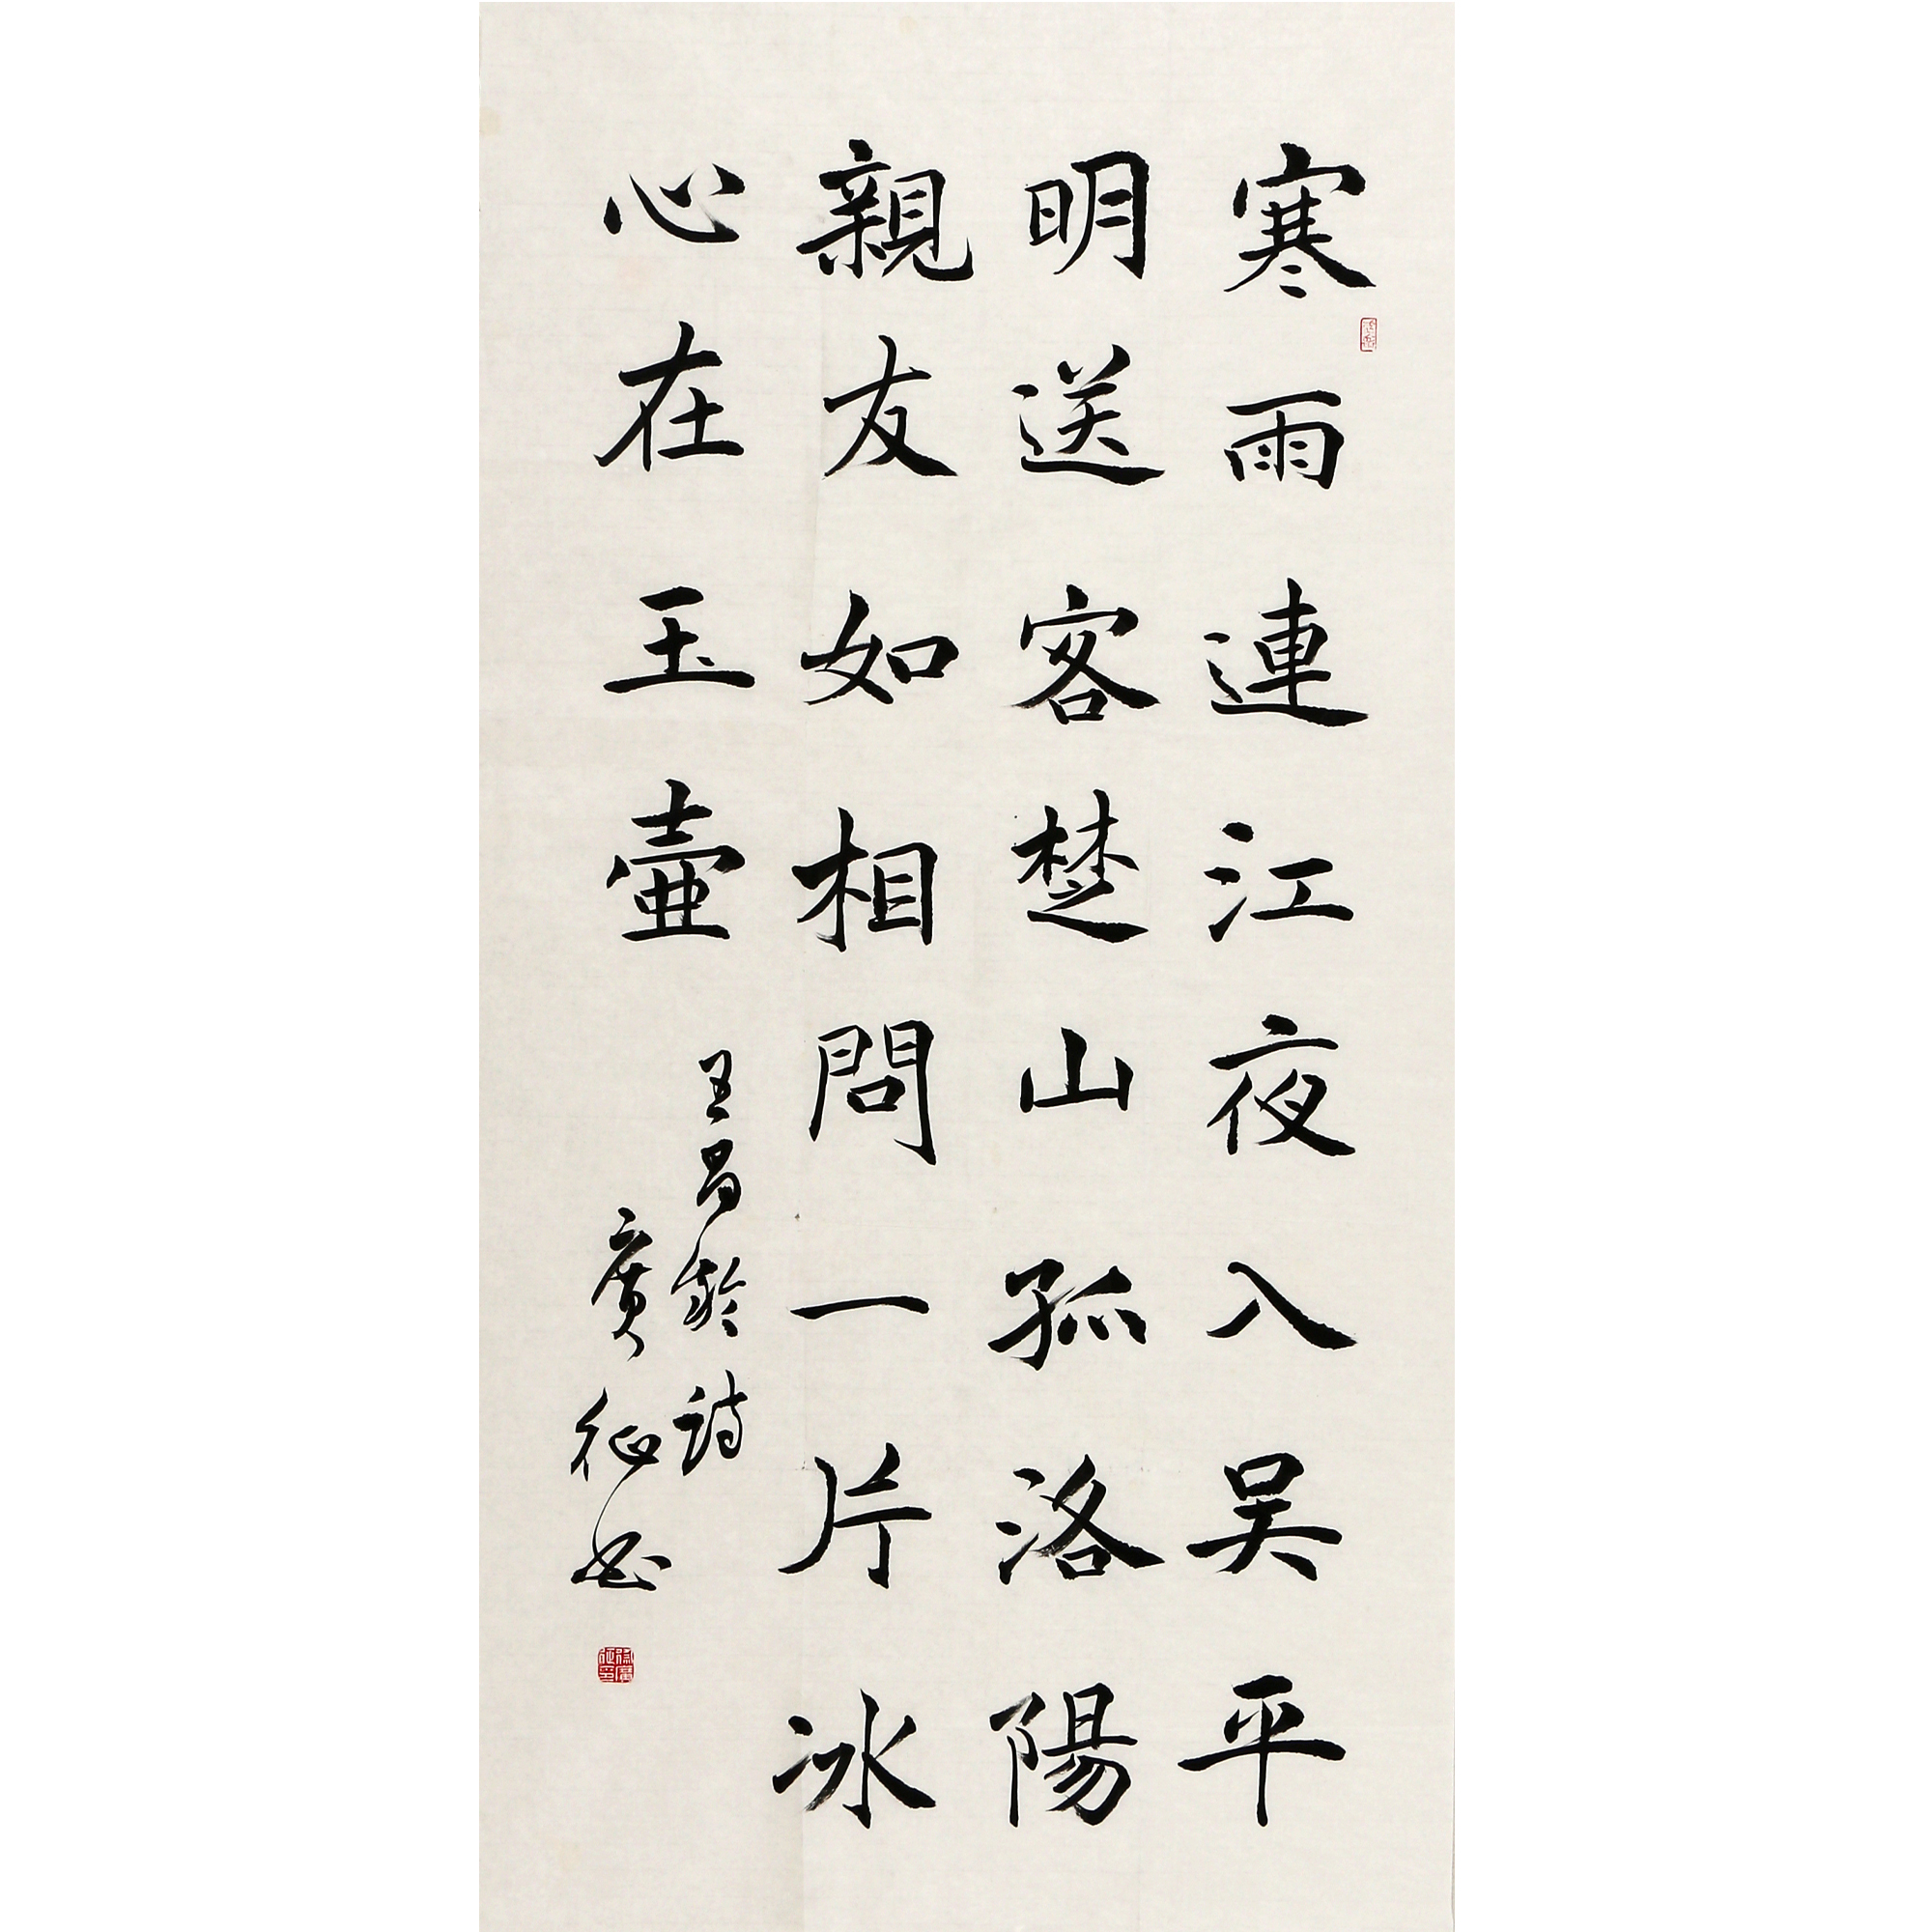 寒雨連江夜入吴平
明送客楚山孤洛陽
親友如相問一片冰
心在玉壺
王昌齡詩
廣征书